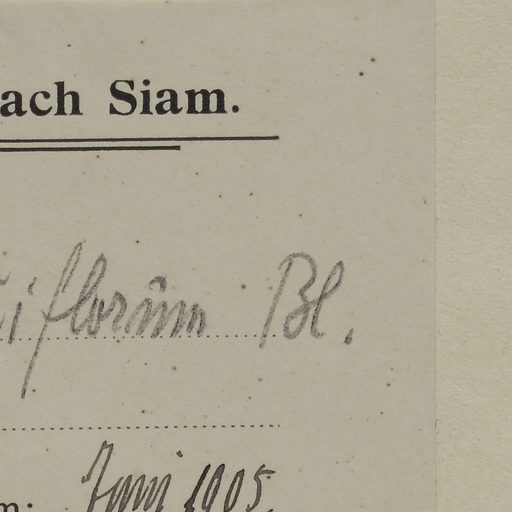 ach Siam.
iflorum Bl.
m: Juni 1905.